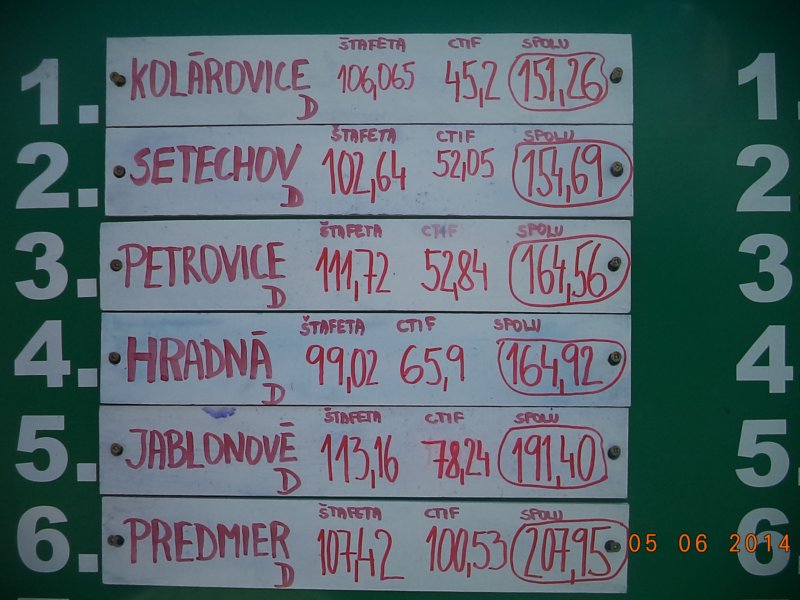 ŠTAFETA CTIF SPOLU
1. KOLÁROVICE D 106,065 45,2 151,26 1.
ŠTAFETA CTIF SPOLU
2. SETECHOV D 102,64 52,05 154,69 2
ŠTAFETA CTIF SPOLU
3. PETROVICE D 111,72 52,84 164,56 3
ŠTAFETA CTIF SPOLU
4. HRADNÁ D 99,02 65,9 164,92 4
ŠTAFETA CTIF SPOLU
5. JABLONOVÉ D 113,16 78,24 191,40 5
ŠTAFETA CTIF SPOLU
6. PREDMIER D 107,42 100,53 207,95 6
05 06 2014